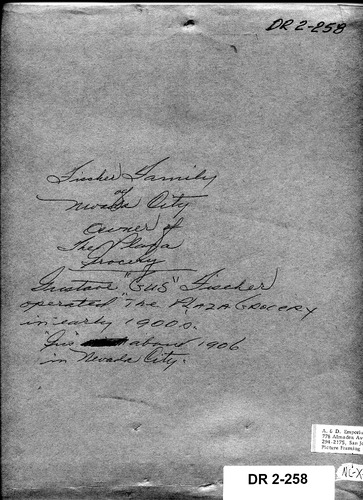 DR 2-258
Fischer Family
of
Nevada City
owner of
The Plaza
Grocery
Gustave "GUS" Fischer
operated "The PLAZA GROCERY
in early 1900s.
"Gus" about 1906
in Nevada City.
A. & D. Emporium
776 Almaden Av
294-2175, San J
Picture Framing
DR 2-258
NC-X